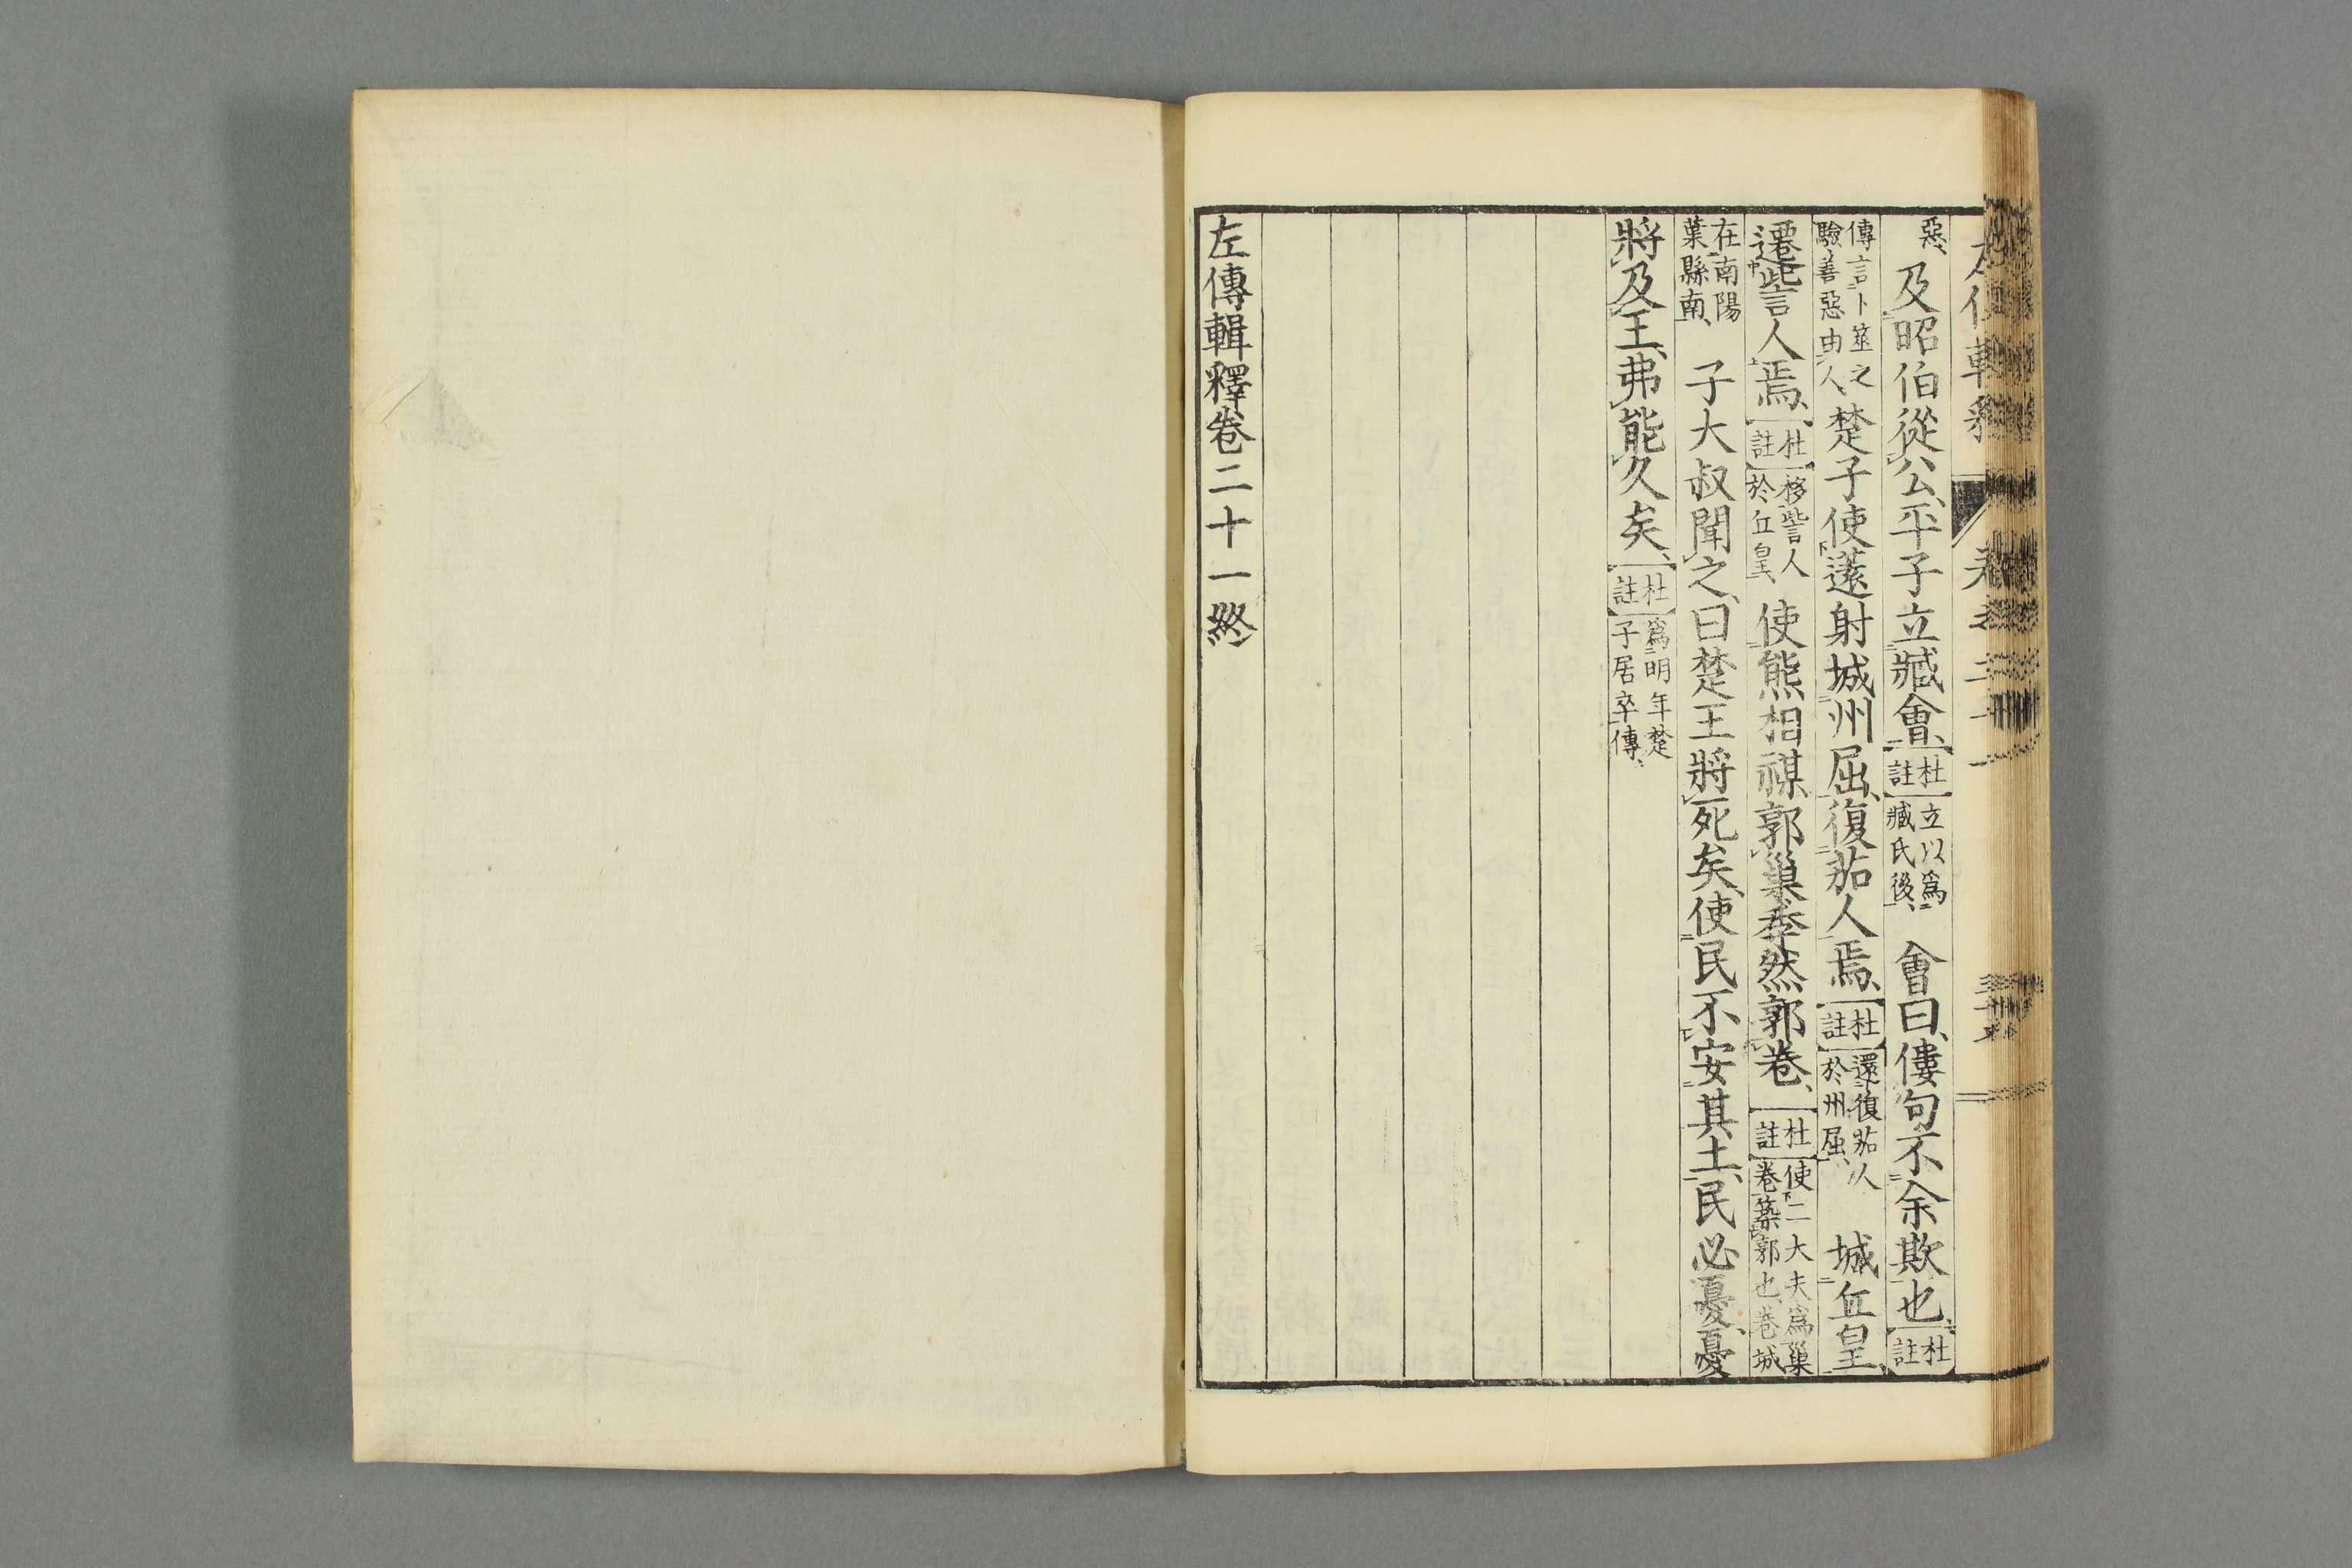 惡、及昭伯從公、平子立臧會、杜註立以爲臧氏後、會曰、僂句不余欺也、杜註
傳言卜筮之驗善惡由人、楚子使薳射城州屈、復茄人焉、杜註還復茄人於州屈、城丘皇、
遷訾人焉、杜註移訾人於丘皇、使熊相禖郭巢、季然郭卷、杜註使二大夫爲巢卷築郭也、卷城
在南陽葉縣南、子大叔聞之、曰楚王將死矣、使民不安其土、民必憂、憂
將及王、弗能久矣、杜註爲明年楚子居卒傳、
左傳輯釋卷二十一終